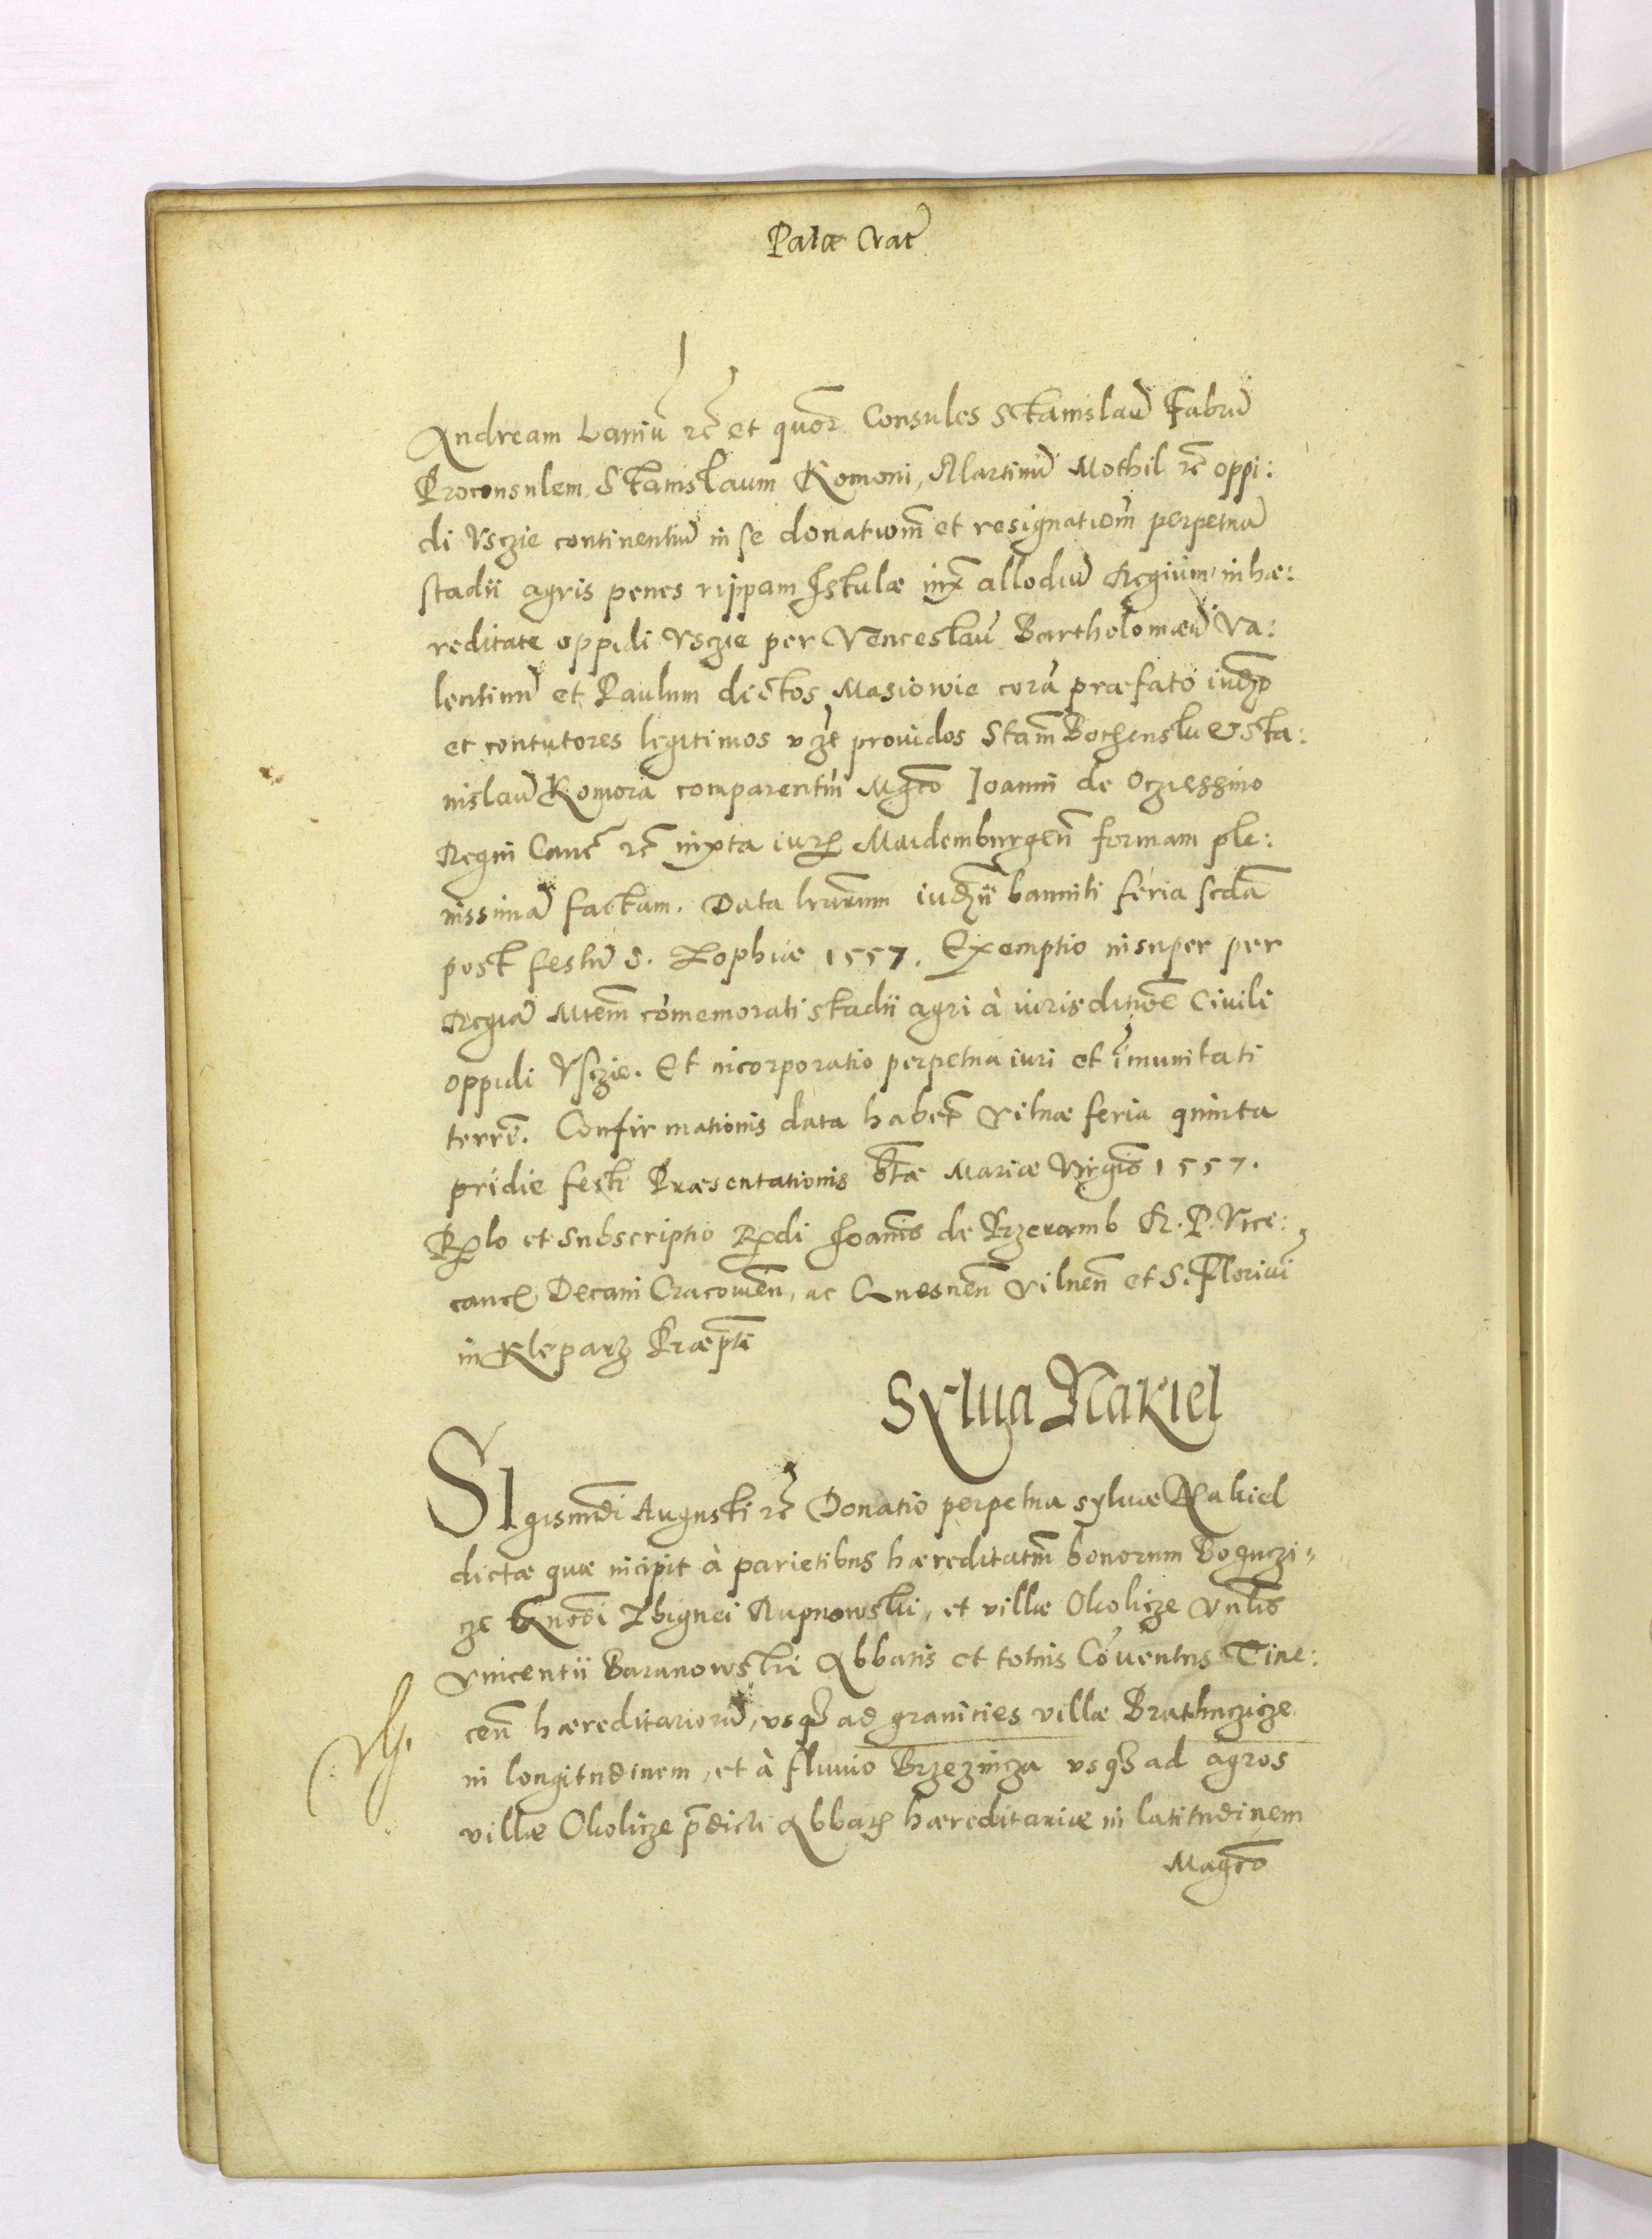 Palæ Crac̃
Andream Laniũ rc̃ et quor̃ Consules Stanislaũ Fabrũ
Proconsulem, Stanislaum Komoni, Martinũ Mothil rc̃ oppi:
di Vsczie continentiũ in se donationẽ et resignationẽ perpetuã
stadii agris penes rippam Istulæ iux̃ allodiũ Regium in hæ:
reditate oppidi Vsczie per Venceslaũ Bartholomæũ Va:
lentinũ et Paulum dictos Masiowie corã præfato iudo
et contutores legitimos vz̃t prouidos Stañ Bochenski et Sta:
nislaũ Komora comparentiũ Mgco Joanni de Oczieszino
Regni Canc̃ rc̃ iuxta iuris Maidemburgeñ formam ple:
nissimã factam. Data lrarum iudicii banniti feria scdã
post festũ S. Zophiæ 1557. Exemptio insuper per
Regiã Mtem cõmemorati stadii agri à iurisditiõe Ciuili
oppidi Vsczie. Et incorporatio perpetua iuri et ĩmunitati
terrẽ. Confirmationis data habet̃ Vilnæ feria quinta
pridie festi Præsentationis Btæ Mariæ Virginis 1557.
Rlo et subscriptio Rdi Joannis de Przeramb R. P. Vice:
canc̃ Decani Cracouieñ, ac Gnesneñ Vilneñ et S. Floriani
in Kleparz Præpti
Sylua Nakiel
Sigismũdi Augusti rc̃ Donatio perpetua syluæ Nakiel
dictæ quæ incipit à parietibus hæreditatũ bonorum Boguczi=
ze Gnosi Zbignei Rupnowski, et villæ Okolicze Vnlis
Vincentii Baranowski Abbatis et totius Cõuentus Tine:
ceñ hæreditariorũ, vsq ad granicies villæ Brathuczicze
in longitudinem, et à fluuio Brzezincza vsq ad agros
villæ Okolicze p̃dicti Abbatis hæreditariæ in latitudinem
Magco